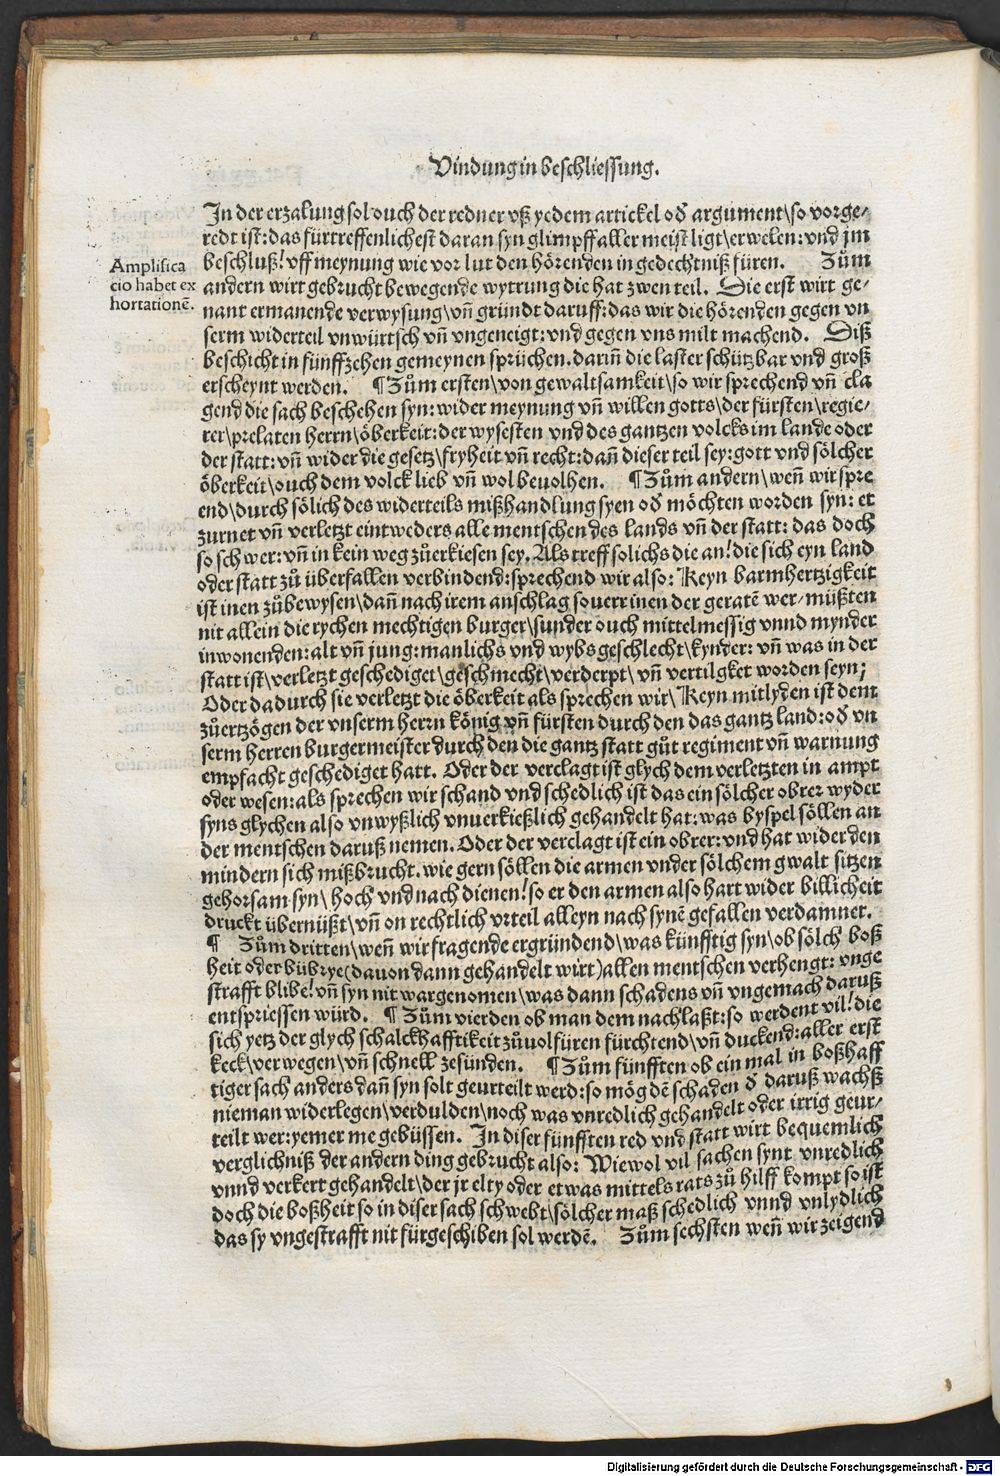 Vindung in beschliessung.
In der erzalung sol ouch der redner vß yedem artickel od̕ argument\so vorge/
redt ist: das fürtreffenlichest daran syn glimpff aller meist ligt\erwelen: vnd jm
beschluß! vff meynung wie vor lut den hörenden in gedechtniß füren. Zům
Amplifica
cio habet ex
hortationē.
andern wirt gebrucht bewegende wytrung die hat zwen teil. Die erst wirt ge-
nant ermanende verwysung\vn̄ gründt daruff: das wir die hörenden gegen vn
serm widerteil vnwürtsch vn̄ vngeneigt: vnd gegen vns milt machend. Diß
beschicht in fünffzehen gemeynen sprüchen. darin̄ die laster schützbar vnd groß
erscheynt werden. ¶ Zům ersten\von gewaltsamkeit\so wir sprechend vn̄ cla
gend die sach beschehen syn: wider meynung vn̄ willen gotts\der fürsten\regie/
rer\prelaten herrn\öberkeit: der wysesten vnd des gantzen volcks im lande oder
der statt: vn̄ wider die gesetz\fryheit vn̄ recht: dan̄ dieser teil sey: gott vnd sölcher
öberkeit\ouch dem volck lieb vn̄ wol beuolhen. ¶ Zům andern\wen̄ wir spre
end\durch sölich des widerteils mißhandlung syen od̕ möchten worden syn: er
zurnet vn̄ verletzt eintweders alle mentschen des lands vn̄ der statt: das doch
so schwer: vn̄ in kein weg zůerkiesen sey. Als treff solichs die an! die sich eyn land
oder statt zů überfallen verbindend: sprechend wir also: Keyn barmhertzigkeit
ist inen zůbewysen\dan̄ nach irem anschlag so uerr inen der geratē wer/müßten
nit allein die rychen mechtigen burger\sunder ouch mittelmessig vnnd mynder
inwonenden: alt vn̄ jung: manlichs vnd wybs geschlecht\kynder: vn̄ was in der
statt ist\verletzt geschediget\geschmecht\verderpt\vn̄ vertilgket worden seyn;
Oder dadurch sie verletzt die öberkeit als sprechen wir\Keyn mitlyden ist dem
zůertzögen der vnserm herrn könig vn̄ fürsten durch den das gantz land: od̕ vn
serm herren burgermeister durch den die gantz statt gůt regiment vn̄ warnung
empfacht geschediget hatt. Oder der verclagt ist glych dem verletzten in ampt
oder wesen: als sprechen wir schand vnd schedlich ist das ein sölcher obrer wyder
syns glychen also vnwyßlich vnuerkießlich gehandelt hat: was byspel söllen an
der mentschen daruß nemen. Oder der verclagt ist ein obrer: vnd hat wider den
mindern sich mißbrucht. wie gern söllen die armen vnder sölchem gwalt sitzen
gehorsam syn\hoch vnd nach dienen! so er den armen also hart wider billicheit
druckt übernüßt\vn̄ on rechtlich vrteil alleyn nach synē gefallen verdamnet.
¶ Zům dritten\wen̄ wir fragende ergründend\was künfftig syn\ob sölch boß
heit oder bübrye (dauon dann gehandelt wirt) allen mentschen verhengt: vnge
strafft blibe! vn̄ syn nit wargenomen\was dann schadens vn̄ vngemach daruß
entspriessen würd. ¶ Zům vierden ob man dem nachlaßt: so werdent vil! die
sich yetz der glych schalckhafftikeit zůuolfüren fürchtend\vn̄ duckend: aller erst
keck\verwegen\vn̄ schnell ze sünden. ¶ Zům fünfften ob ein mal in boßhaff
tiger sach anders dan̄ syn solt geurteilt werd: so mög dē schaden d̕ daruß wachß
nieman widerlegen\verdulden\noch was vnredlich gehandelt oder irrig geur/
teilt wer: yemer me gebüssen. In diser fünfften red vnd statt wirt bequemlich
verglichniß der andern ding gebrucht also: Wiewol vil sachen synt vnredlich
vnnd verkert gehandelt\der jr elty oder etwas mittels rats zů hilff kompt so ist
doch die boßheit so in diser sach schwebt\sölcher maß schedlich vnnd vnlydlich
das sy vngestrafft nit fürgeschiben sol werdē. Zům sechsten wen̄ wir zeigend
Digitalisierung gefördert durch die Deutsche Forschungsgemeinschaft - DFG